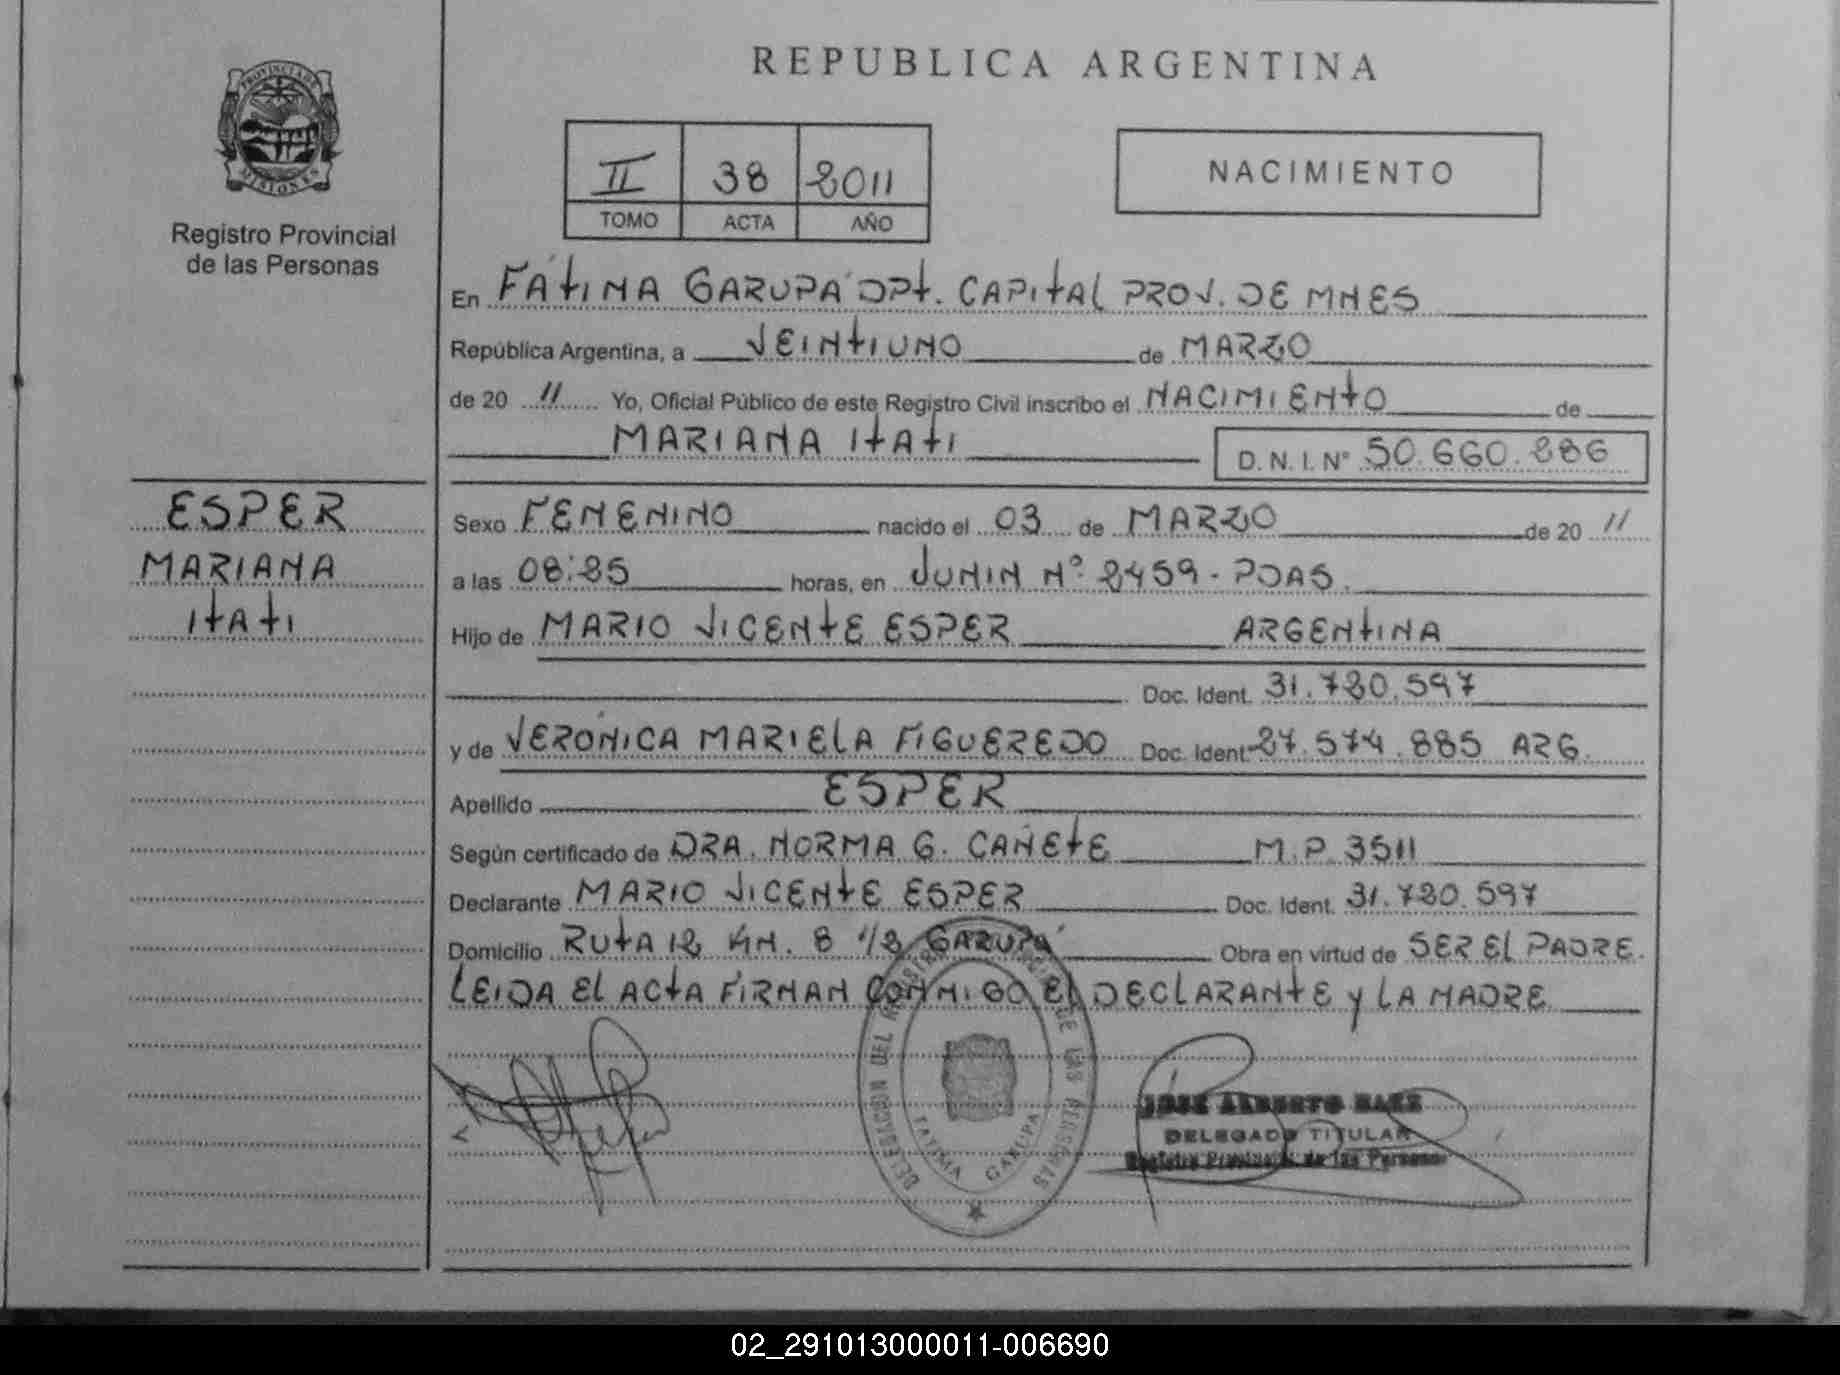 REPUBLICA ARGENTINA
PROVINCIA DE MISIONES
Registro Provincial
de las Personas
II 38 2011
TOMO ACTA AÑO
NACIMIENTO
En FÁTIMA GARUPÁ DPt. CAPITAL PROV. DE MNES
República Argentina, a VEINTIUNO de MARZO
de 20 11 Yo, Oficial Público de este Registro Civil inscribo el NACIMIENTO de
MARIANA ITATI D.N.I. Nº 50.660.286
ESPER
MARIANA
ITATI
Sexo FEMENINO nacido el 03 de MARZO de 20 11
a las 08:25 horas, en JUNIN Nº 2459 - PDAS.
Hijo de MARIO VICENTE ESPER ARGENTINA
Doc. Ident. 31.720.597
y de VERÓNICA MARIELA FIGUEREDO Doc. Ident 27.574.885 ARG.
Apellido ESPER
Según certificado de DRA. NORMA G. CAÑETE M.P. 3511
Declarante MARIO VICENTE ESPER Doc. Ident. 31.720.597
Domicilio RUTA 12 KM. 8 1/2 GARUPÁ Obra en virtud de SER EL PADRE.
LEIDA EL ACTA FIRMAN CONMIGO EL DECLARANTE y LA MADRE
DELEGACION DEL REGISTRO PROVINCIAL DE LAS PERSONAS
FATIMA GARUPA
JOSE ALBERTO BAEZ
DELEGADO TITULAR
Registro Provincial de las Personas
02_291013000011-006690